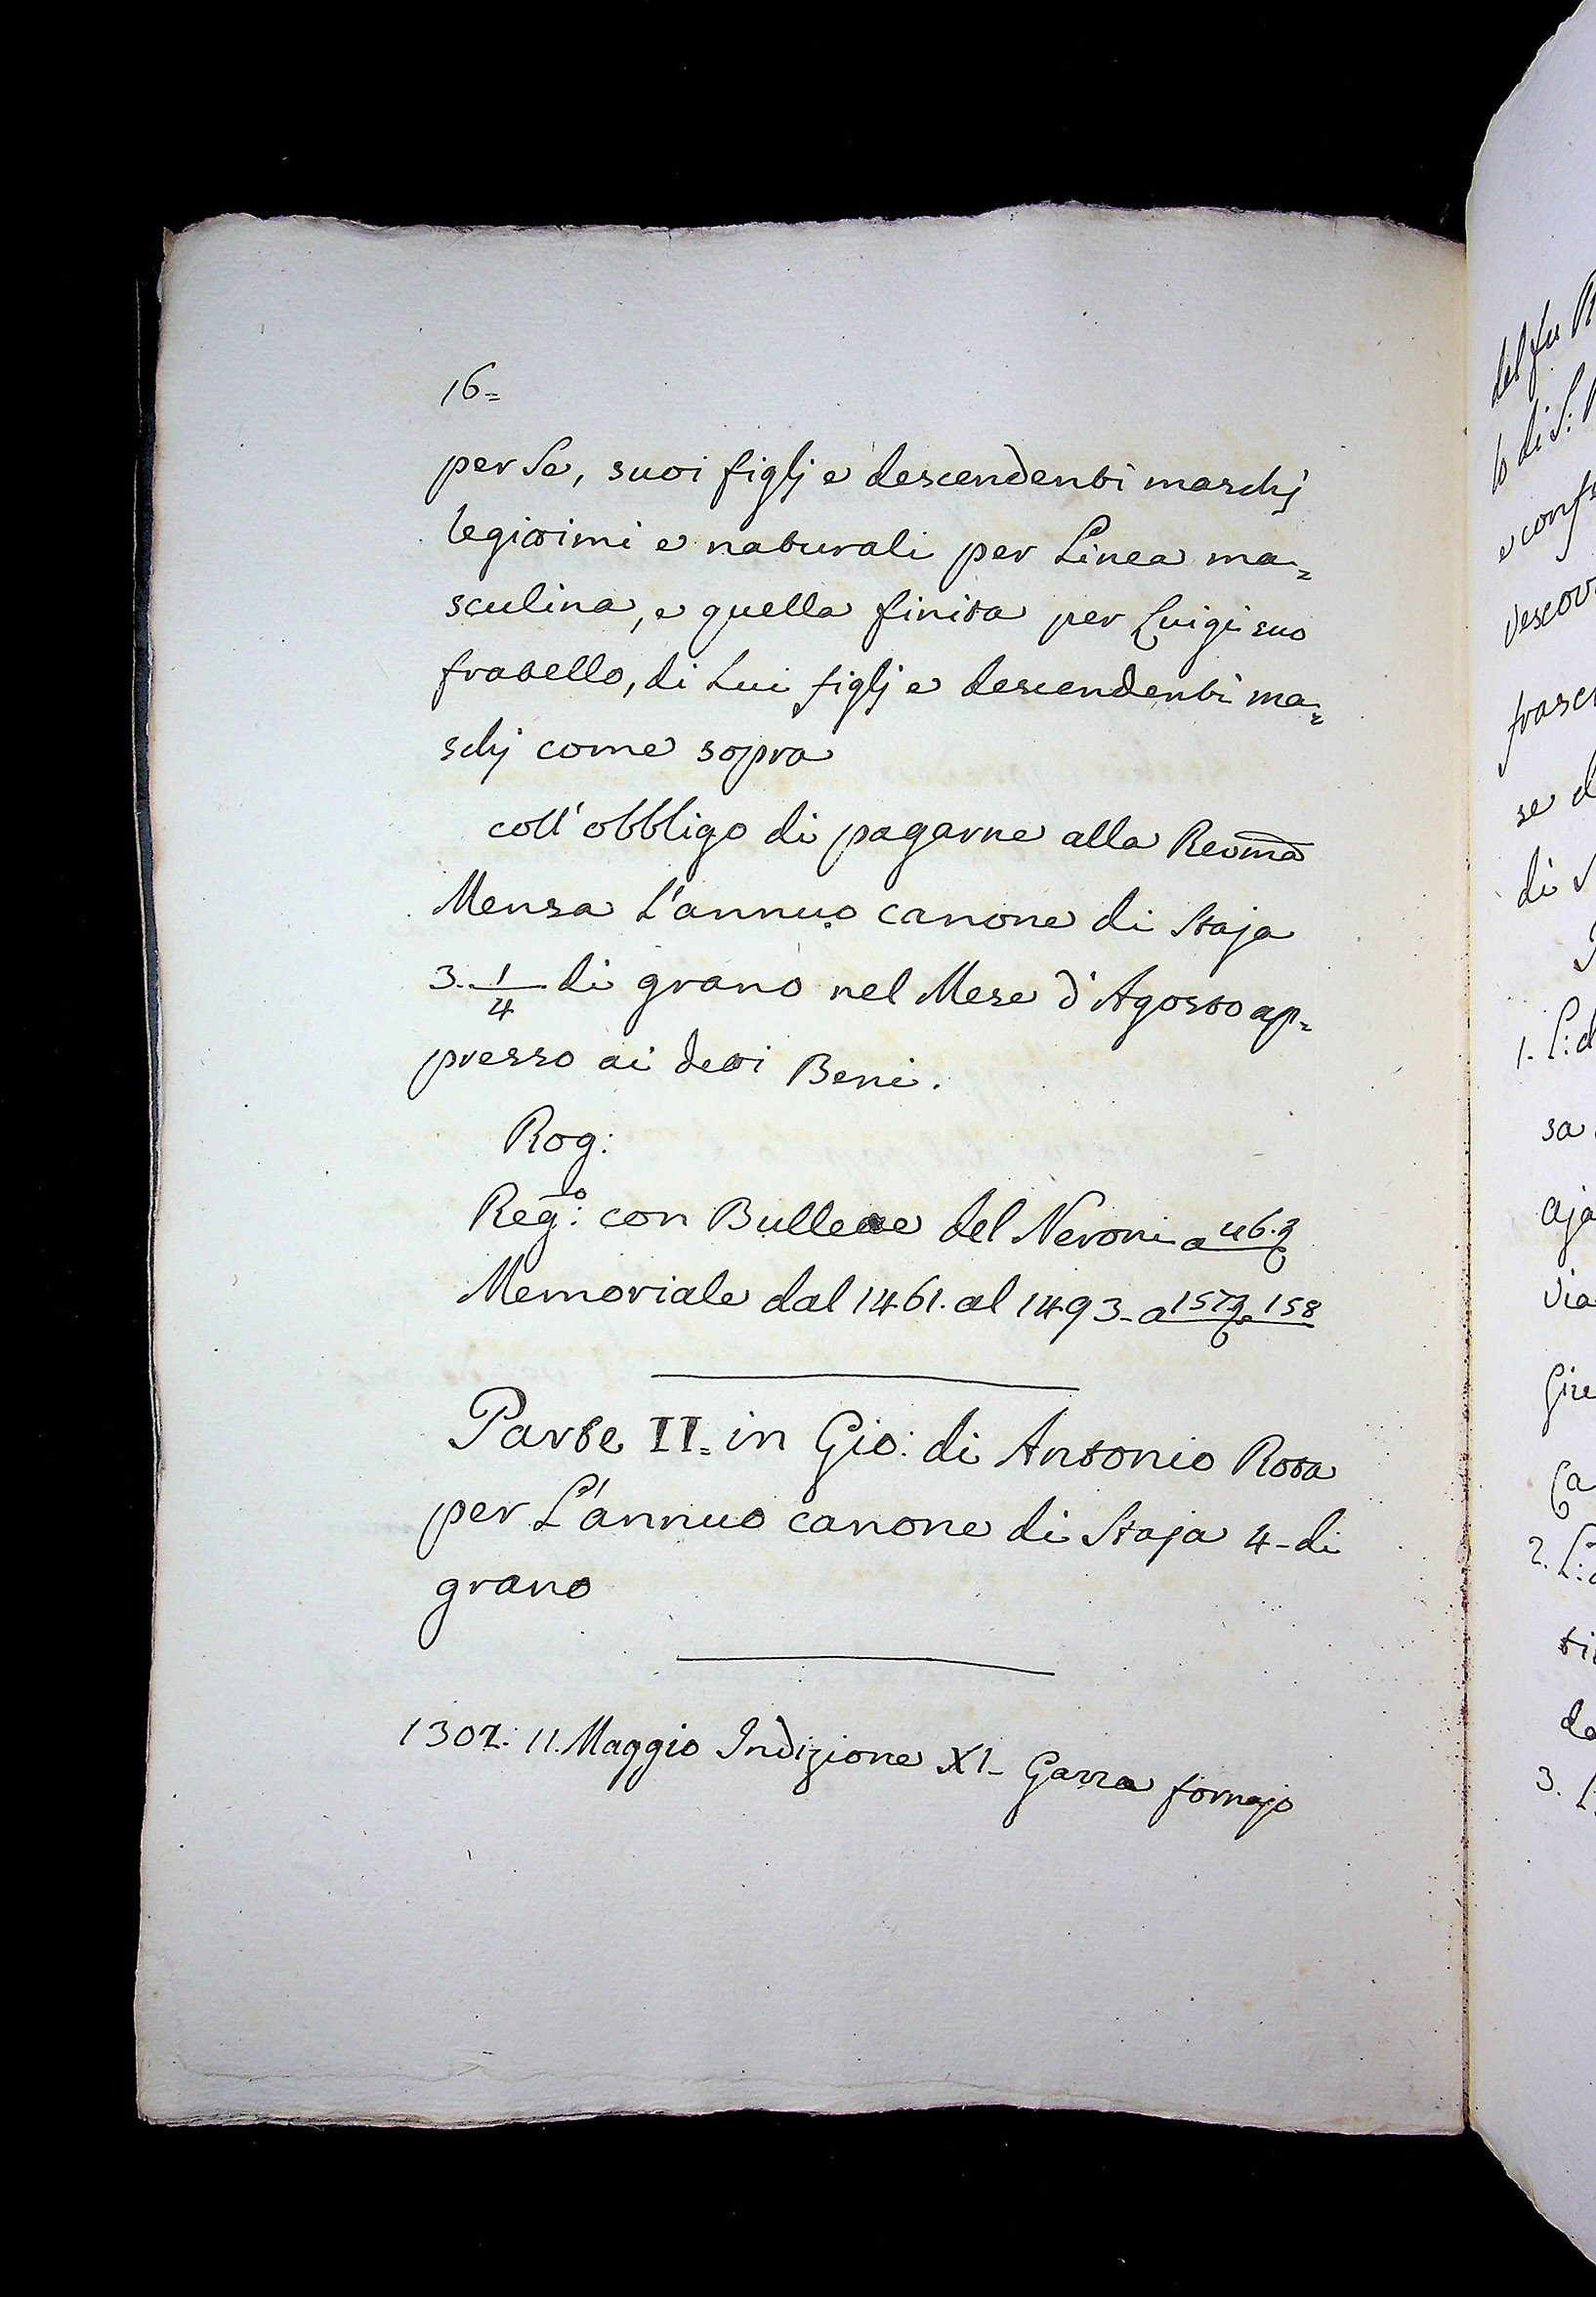 16=
per Se, suoi figlj e descendenti maschj
legittimi e naturali per Linea ma=
sculina, e quella finita per Luigi suo
fratello, di Lui figlj e descendenti ma=
schj come sopra
coll'obbligo di pagarne alla Reuma
Mensa L'annuo canone di Staja
3. 1/4 di grano nel Mese d'Agosto ap=
presso ai detti Beni.
Rog:
Reg:o con Bullette del Neroni a
Memoriale dal 1461. al 1493- a 157 158
Parte II= in Gio: di Antonio Rota
per L'annuo canone di Staja 4- di
grano
11. Maggio Indizione XI- Garza fornajo
del fu
to di S:
e conf
vescov
frasc
se d
di S
1. L: d
sa
aja
via
Giu
Ca
2. L:
ti
de
3. L